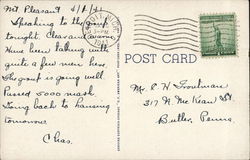 Mt. Pleasant 4/8/41
Speaking to the group
tonight. Clear and warm
Have been talking with
quite a few men here.
The group is going well
Passed 5000 mark
Going back to Lansing
tomorrow.
Chas.
POST CARD
Mr. E. N. Troutman
317 N. McKean St
Butler, Penna.